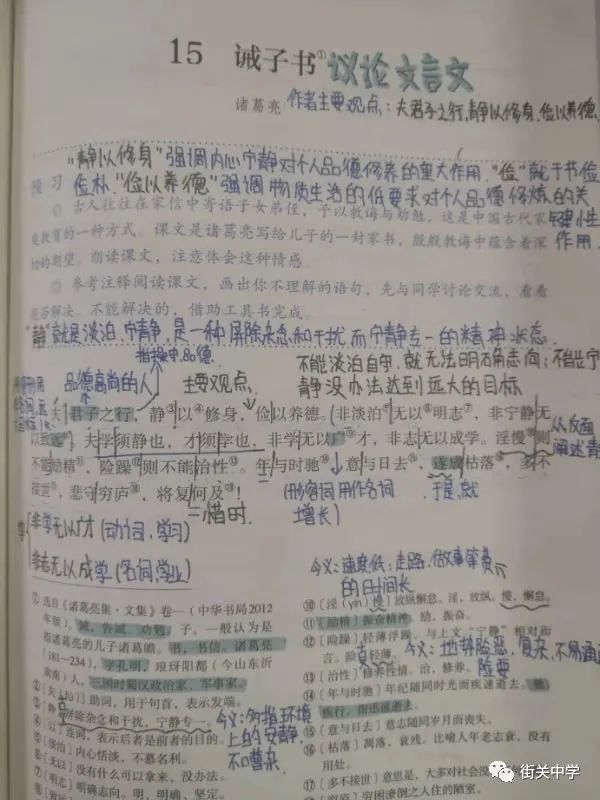 15 诫子书①议论文言文
诸葛亮 作者主要观点：夫君子之行，静以修身，俭以养德
"静以修身"强调内心宁静对个人品德修养的重大作用，"俭"就于节俭
预习 俭朴，"俭以养德"强调物质生活的低要求对个人品德修炼的关
键性
作用
◎ 古人往往在家信中寄语子女弟侄，予以教诲与劝勉，这是中国古代家
庭教育的一种方式。课文是诸葛亮写给儿子的一封家书，殷殷教诲中蕴含着深
切的期望。朗读课文，注意体会这种情感。
◎ 参考注释阅读课文，画出你不理解的语句，先与同学讨论交流，看看
能否解决。不能解决的，借助工具书完成。
"静"就是淡泊、宁静，是一种屏除杂念和干扰而宁静专一的精神状态。
指操守、品德
不能淡泊自守，就无法明确志向；不能宁
品德高尚的人 主要观点
静没办法达到远大的目标
夫君子之行，静③以④修身，俭以养德。非淡泊⑤无以⑥明志⑦，非宁静无
以致远⑧。夫学须静也，才须学也，非学无以广⑨才，非志无以成学。淫慢⑩则
从反面
阐述
不能励精⑪，险躁⑫则不能治性⑬。年与时驰⑭，意与日去⑮，遂成枯落⑯，多不
接世⑰，悲守穷庐⑱，将复何及⑲！
(形容词用作名词
增长)
于是，就
惜时
学
非学无以广才(动词，学习)
非志无以成学(名词，学业)
今义：速度低；走路、做事等费
的时间长
① 选自《诸葛亮集·文集》卷一（中华书局2012
年版）。诫，告诫、劝勉。子，一般认为是
指诸葛亮的儿子诸葛瞻。书，书信。诸葛亮
（181—234），字孔明，琅琊阳都（今山东沂
南）人，三国时蜀汉政治家、军事家。
②〔夫（fú）〕助词，用于句首，表示发端。
③〔静〕屏除杂念和干扰，宁静专一。
今义：多指环境
上的安静，
不嘈杂
④〔以〕连词，表示后者是前者的目的。
⑤〔淡泊〕内心恬淡，不慕名利。
⑥〔无以〕没有什么可以拿来，没办法。
⑦〔明志〕明确志向。明，明确、坚定。
⑩〔淫（yín）慢〕放纵懈怠。淫，放纵。慢，懈怠。
⑪〔励精〕振奋精神。励，振奋。
⑫〔险躁〕轻薄浮躁。与上文"宁静"相对而
言。险，轻薄。
今义：地势险恶、复杂，不易通过
险要
⑬〔治性〕修养性情。治，修养。
⑭〔年与时驰〕年纪随同时光而疾速逝去。驰，
疾行，指迅速逝去。
⑮〔意与日去〕意志随同岁月而丧失。
⑯〔枯落〕凋落，衰残。比喻人年老志衰，没有
用处。
⑰〔多不接世〕意思是，大多对社会没有
⑱〔穷庐〕穷困潦倒之人住的陋室。
街关中学